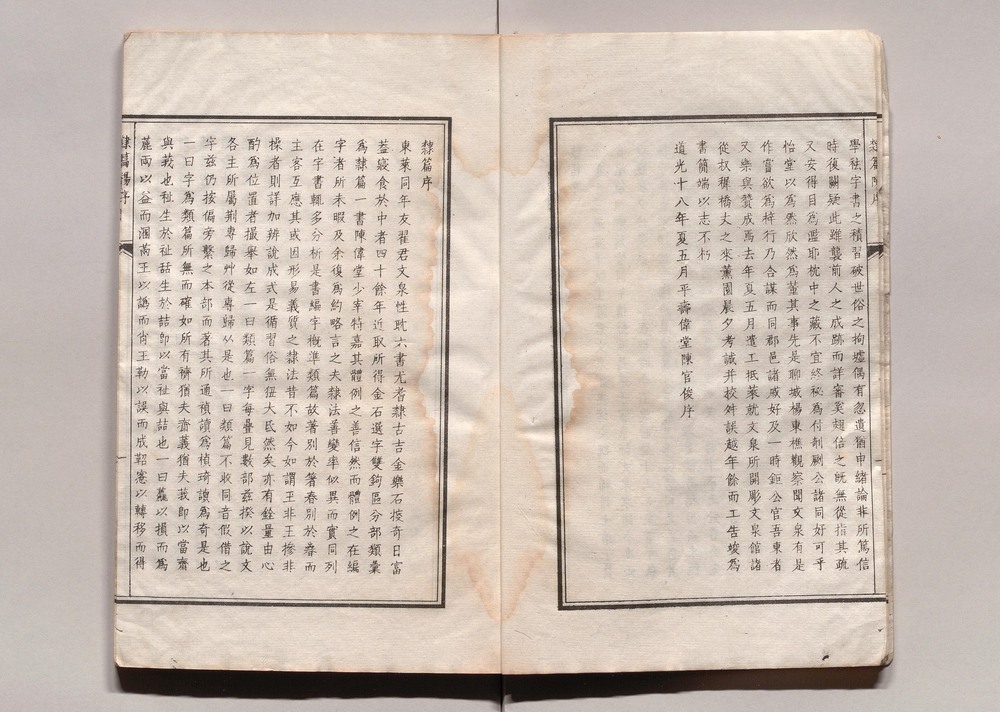 學祛字書之積習破世俗之拘墟偶有忽遺猶申緒論非所篤信
時後闕疑此雖襲前人之成跡而詳審奚翅倍之旣無從指其疏
又安得目為濫耶枕中之藏不宜終祕為付剞劂公諸同好可乎
怡堂以為然欣然為董其事先是聊城楊東樵觀察聞文泉有是
作嘗欲為梓行乃合謀而同郡邑諸戚好及一時鉅公官吾東者
又樂與贊成焉去年夏五月遣工抵萊就文泉所開彫文泉館諸
從叔穉橋丈之來薰園晨夕考誠并挍舛誤越年餘而工告竣為
書簡端以志不朽
道光十八年夏五月平壽偉堂陳官俊序
隸篇序
東萊同年友翟君文泉性耽六書尤耆隸古吉金樂石挍奇日富
葢寢食於中者四十餘年近取所得金石選字雙鉤區分部類彙
為隸篇一書陳偉堂少宰特嘉其體例之善信然而體例之在編
字者所未暇及余復為約略言之夫隸法善變率似異而實同列
在字書輒多分析是書編字槪準類篇故著別於著春別於舂而
主客互應其或因形易義質之隸法昔不如今如謂王非王摻非
橾者則詳加辨說成式是循習俗無狃大氐然矣亦有銓量由心
酌為位置者撮舉如左一曰類篇一字每疊見數部茲揆以說文
各主所屬荆專歸艸從專歸从是也一曰類篇不收同音假借之
字茲仍按偏旁繫之本部而著其所通禎讀為楨琦讀為奇是也
一曰字為類篇所無而確如所有䄢猶夫齋義猶夫莪即以當齋
與莪也祉生於祉喆生於喆即以當祉與喆也一曰蘿以損而為
蘼兩以益而